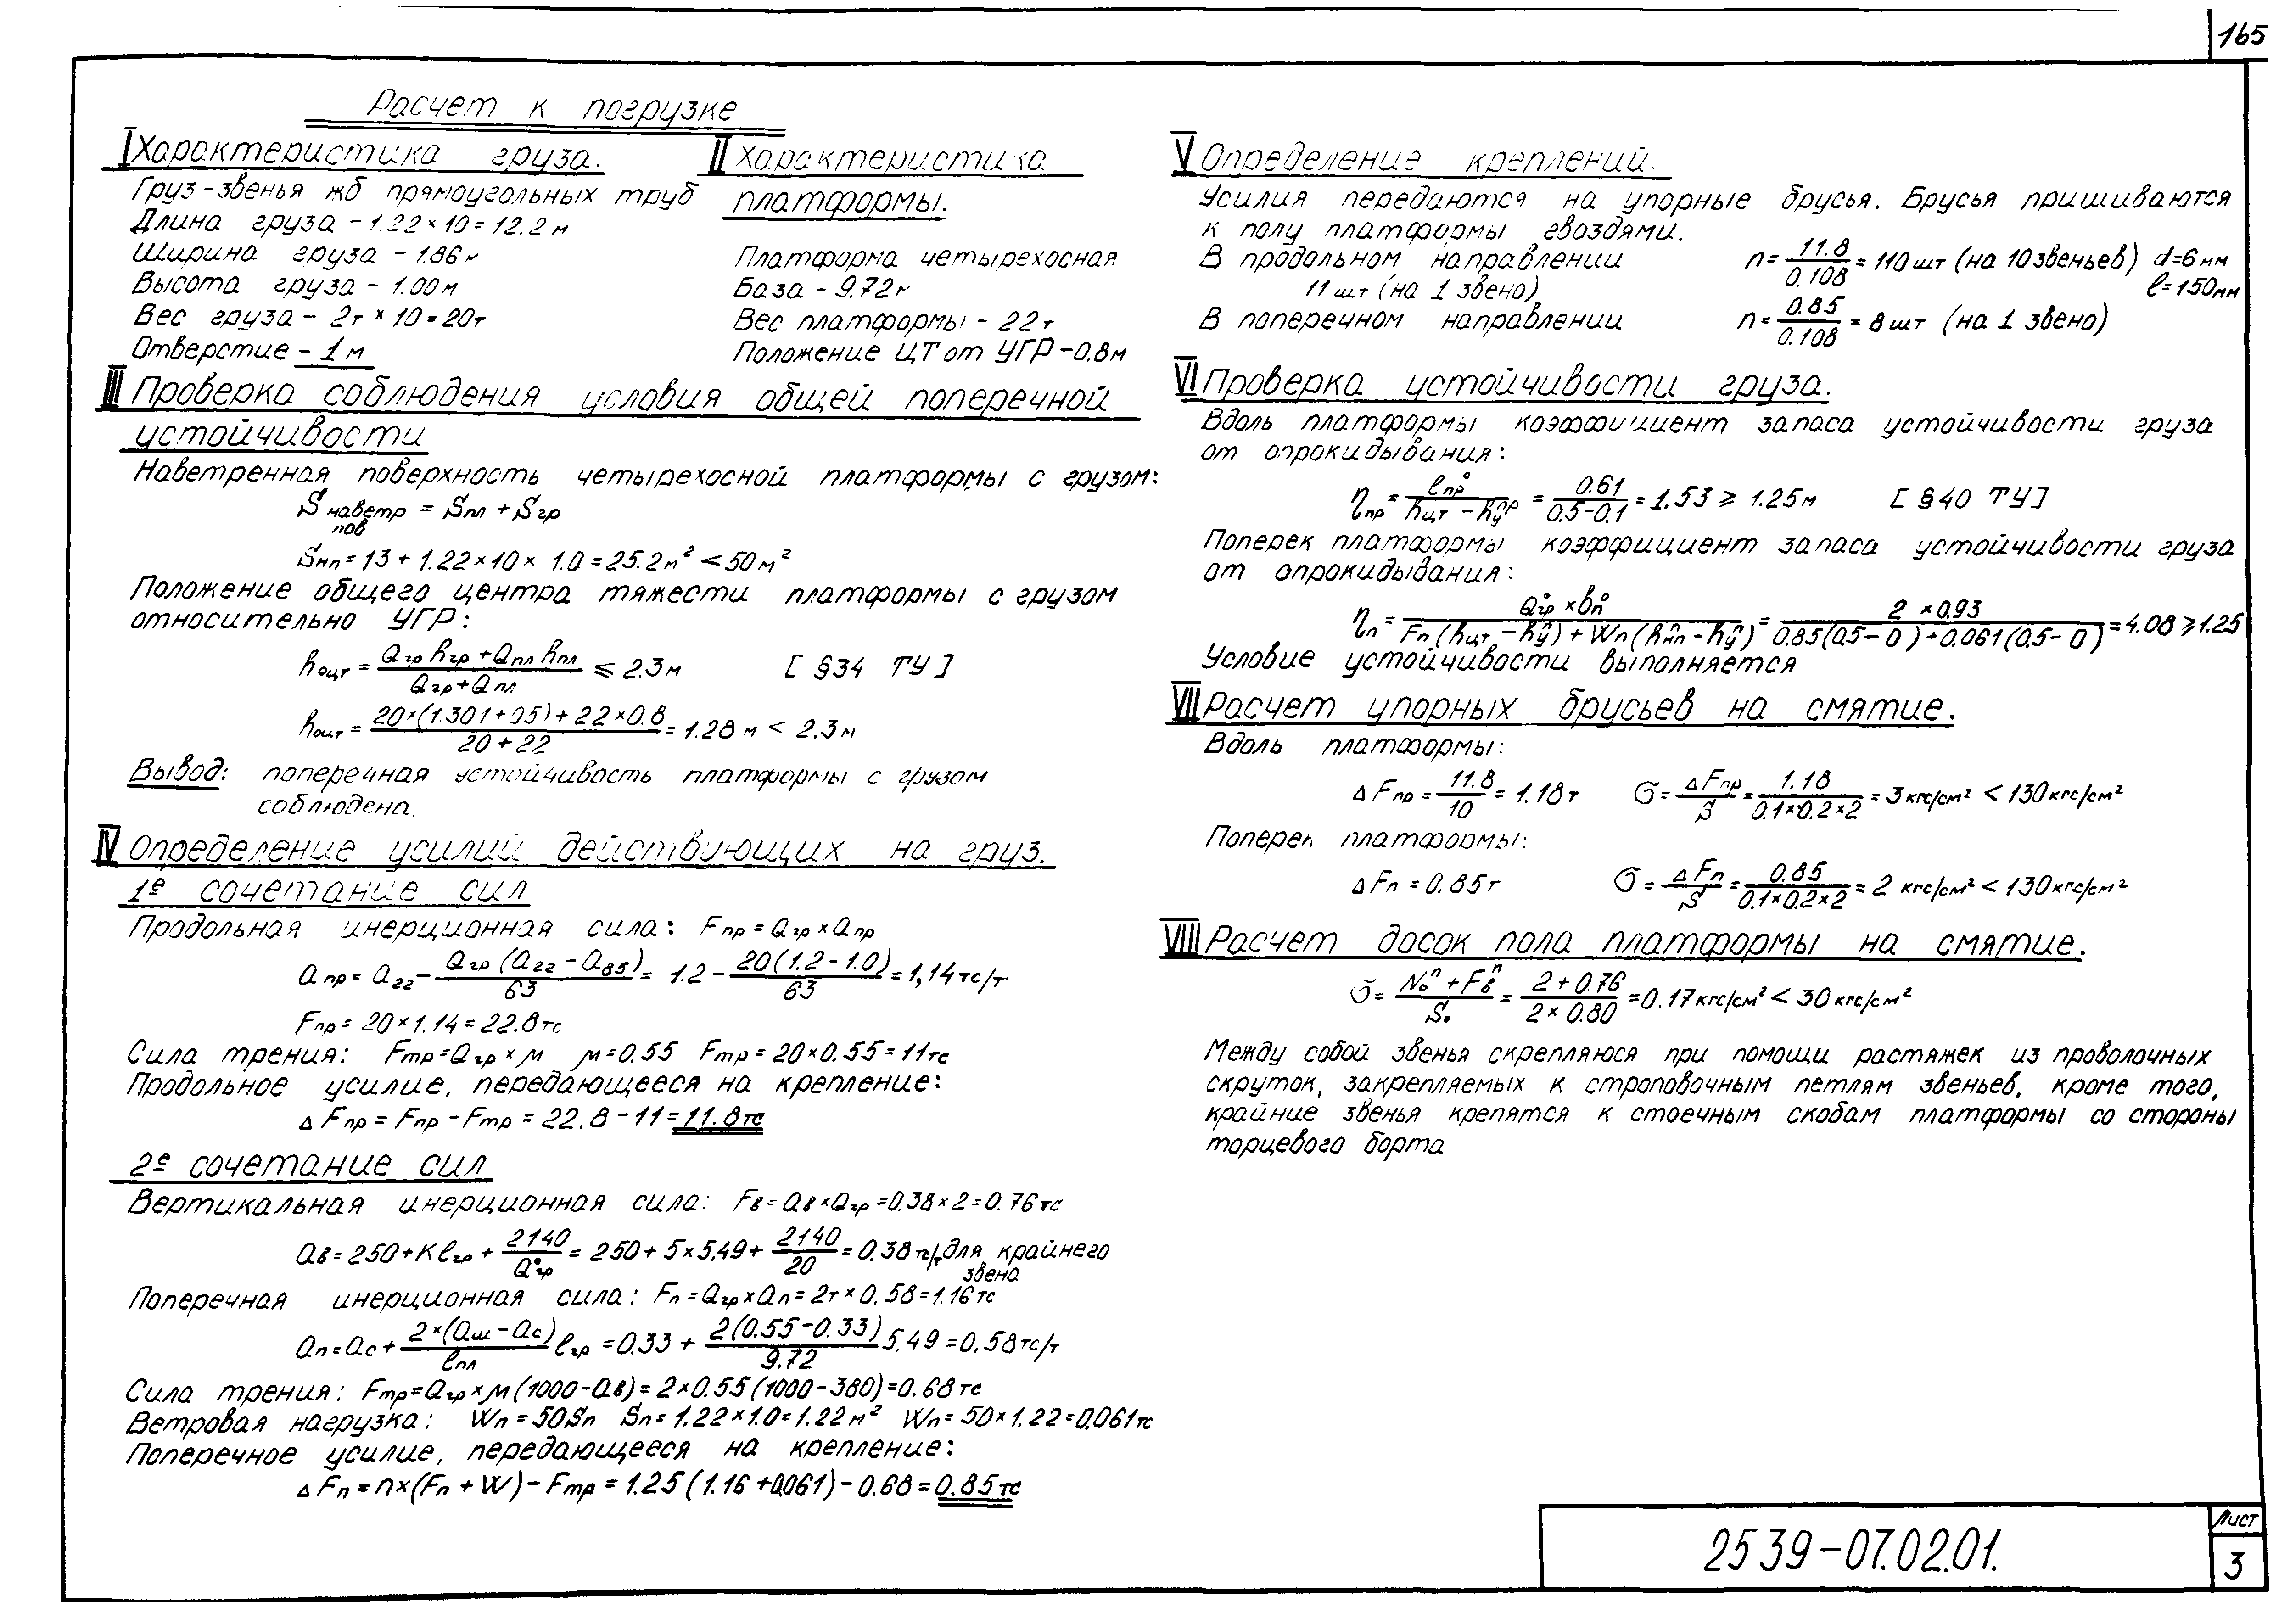 165
Расчет к погрузке
I Характеристика груза.
Груз-звенья жб прямоугольных труб
Длина груза - 1.22 × 10 = 12.2 м
Ширина груза - 1.86 м
Высота груза - 1.00 м
Вес груза - 2т × 10 = 20т
Отверстие - 1 м
II Характеристика
платформы.
Платформа четырехосная
База - 9.72 м
Вес платформы - 22 т
Положение ЦТ от УГР - 0.8 м
III Проверка соблюдения условия общей поперечной
устойчивости
Наветренная поверхность четырехосной платформы с грузом:
S наветр пов = Sпл + Sгр
Sнп = 13 + 1.22 × 10 × 1.0 = 25.2 м² < 50 м²
Положение общего центра тяжести платформы с грузом
относительно УГР:
hоцт = (Qгр hгр + Qпл hпл) / (Qгр + Qпл) ≤ 2.3 м [ §34 ТУ ]
hоцт = (20×(1.301+05) + 22×0.8) / (20 + 22) = 1.28 м < 2.3 м
Вывод: поперечная устойчивость платформы с грузом
соблюдена.
IV Определение усилий действующих на груз.
1е сочетание сил
Продольная инерционная сила: Fпр = Qгр × aпр
aпр = a22 - Qгр (a22 - a85) / 63 = 1.2 - 20 (1.2 - 1.0) / 63 = 1,14 тс/т
Fпр = 20 × 1.14 = 22.8 тс
Сила трения: Fтр = Qгр × м м = 0.55 Fтр = 20 × 0.55 = 11 тс
Продольное усилие, передающееся на крепление:
Δ Fпр = Fпр - Fтр = 22.8 - 11 = 11.8 тс
2е сочетание сил
Вертикальная инерционная сила: Fв = aв × Qгр = 0.38 × 2 = 0.76 тс
aв = 250 + К lгр + 2140 / Q°гр = 250 + 5 × 5,49 + 2140 / 20 = 0.38 тс/т для крайнего
звена
Поперечная инерционная сила: Fп = Qгр × aп = 2т × 0.58 = 1.16 тс
aп = aс + 2×(aш - aс) / lпл lгр = 0.33 + 2 (0.55 - 0.33) / 9.72 5.49 = 0,58 тс/т
Сила трения: Fтр = Qгр × м (1000 - aв) = 2 × 0.55 (1000 - 380) = 0.68 тс
Ветровая нагрузка: Wп = 50 Sп Sп = 1.22 × 1.0 = 1.22 м² Wп = 50 × 1.22 = 0,061 тс
Поперечное усилие, передающееся на крепление:
Δ Fп = n × (Fп + W) - Fтр = 1.25 (1.16 + 0,061) - 0.68 = 0.85 тс
V Определение креплений.
Усилия передаются на упорные брусья. Брусья пришиваются
к полу платформы гвоздями.
В продольном направлении n = 11.8 / 0.108 = 110 шт (на 10 звеньев) d = 6 мм
11 шт (на 1 звено) l = 150 мм
В поперечном направлении n = 0.85 / 0.108 = 8 шт (на 1 звено)
VI Проверка устойчивости груза.
Вдоль платформы коэффициент запаса устойчивости груза
от опрокидывания:
ηпр = l°пр / (hцт - hу пр) = 0.61 / (0.5 - 0.1) = 1.53 ≥ 1.25 м [ §40 ТУ ]
Поперек платформы коэффициент запаса устойчивости груза
от опрокидывания:
ηп = Q°гр × b°п / (Fп (hцт - hпу) + Wп (hпнп - hпу)) = 2 × 0.93 / (0.85 (0.5 - 0) + 0.061 (0.5 - 0)) = 4.08 ≥ 1.25
Условие устойчивости выполняется
VII Расчет упорных брусьев на смятие.
Вдоль платформы:
Δ Fпр = 11.8 / 10 = 1.18 т σ = Δ Fпр / S = 1.18 / (0.1 × 0.2 × 2) = 3 кгс/см² < 130 кгс/см²
Поперек платформы:
Δ Fп = 0.85 т σ = Δ Fп / S = 0.85 / (0.1 × 0.2 × 2) = 2 кгс/см² < 130 кгс/см²
VIII Расчет досок пола платформы на смятие.
σ = (Nоп + Fвп) / Sо = (2 + 0.76) / (2 × 0.80) = 0.17 кгс/см² < 30 кгс/см²
Между собой звенья скрепляюся при помощи растяжек из проволочных
скруток, закрепляемых к строповочным петлям звеньев, кроме того,
крайние звенья крепятся к стоечным скобам платформы со стороны
торцевого борта
2539-07.02.01.
Лист
3